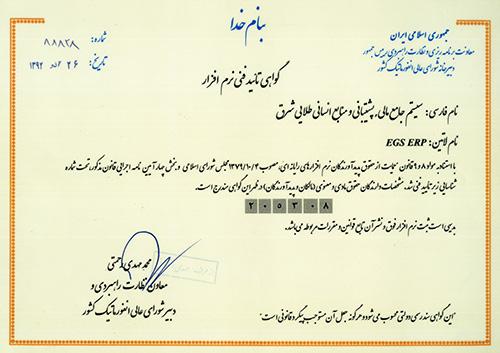 بنام خدا
جمهوری اسلامی ایران
معاونت برنامه ریزی و نظارت راهبردی رییس جمهور
دبیرخانه شورای عالی انفورماتیک کشور
شماره: ۸۸۸۲۸
تاریخ: ۲۶ ۱۳۹۲
گواهی تائید فنی نرم افزار
نام فارسی: سیستم جامع مالی، پشتیبانی و منابع انسانی طلایی شرق
نام لاتین: EGS ERP
با استناد به مواد ۸ و ۹ قانون حمایت از حقوق پدیدآورندگان نرم افزارهای رایانه ای، مصوب ۱۳۷۹/۱۰/۴ مجلس شورای اسلامی و بخش چهار آیین نامه اجرایی قانون مذکور، تحت شماره
شناسایی زیر تایید فنی شد. مشخصات دارندگان حقوق مادی و معنوی (مالکان و پدیدآورندگان) در ظهر این گواهی مندرج است.
۲۰۵۳۰۸
بدیهی است ثبت نرم افزار فوق و نشر آن تابع قوانین و مقررات مربوطه می باشد.
محمد مهدی رحمتی
معاون نظارت راهبردی و
دبیر شورای عالی انفورماتیک کشور
"این گواهی سندرسمی دولتی محسوب می شود و هرگونه جعل آن مستوجب پیگرد قانونی است."